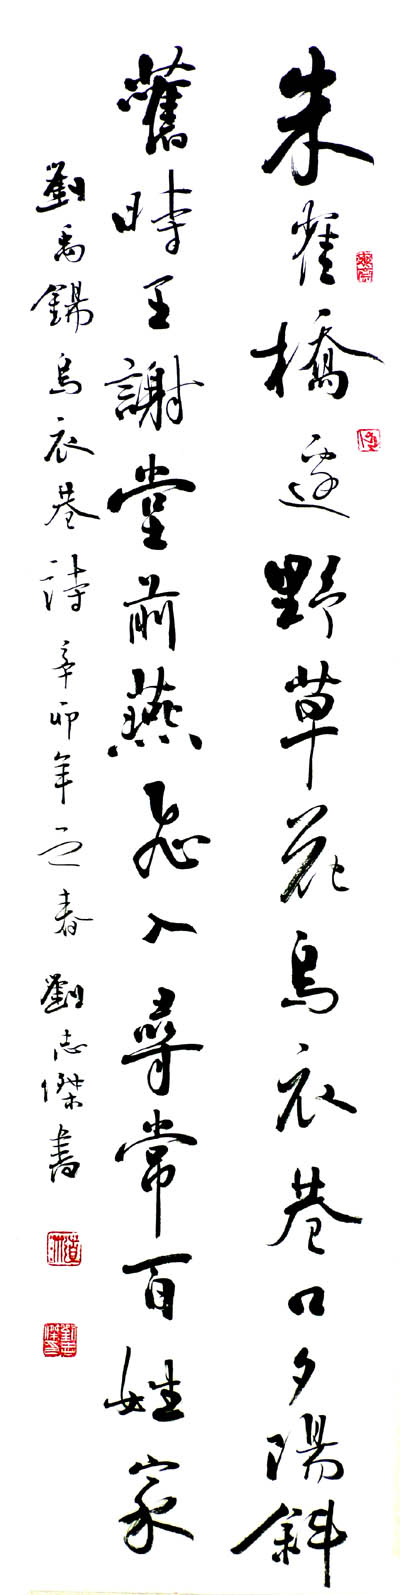 朱雀橋邊野草花烏衣巷口夕陽斜
舊時王謝堂前燕飛入尋常百姓家
劉禹錫烏衣巷詩辛卯年之春劉志傑書